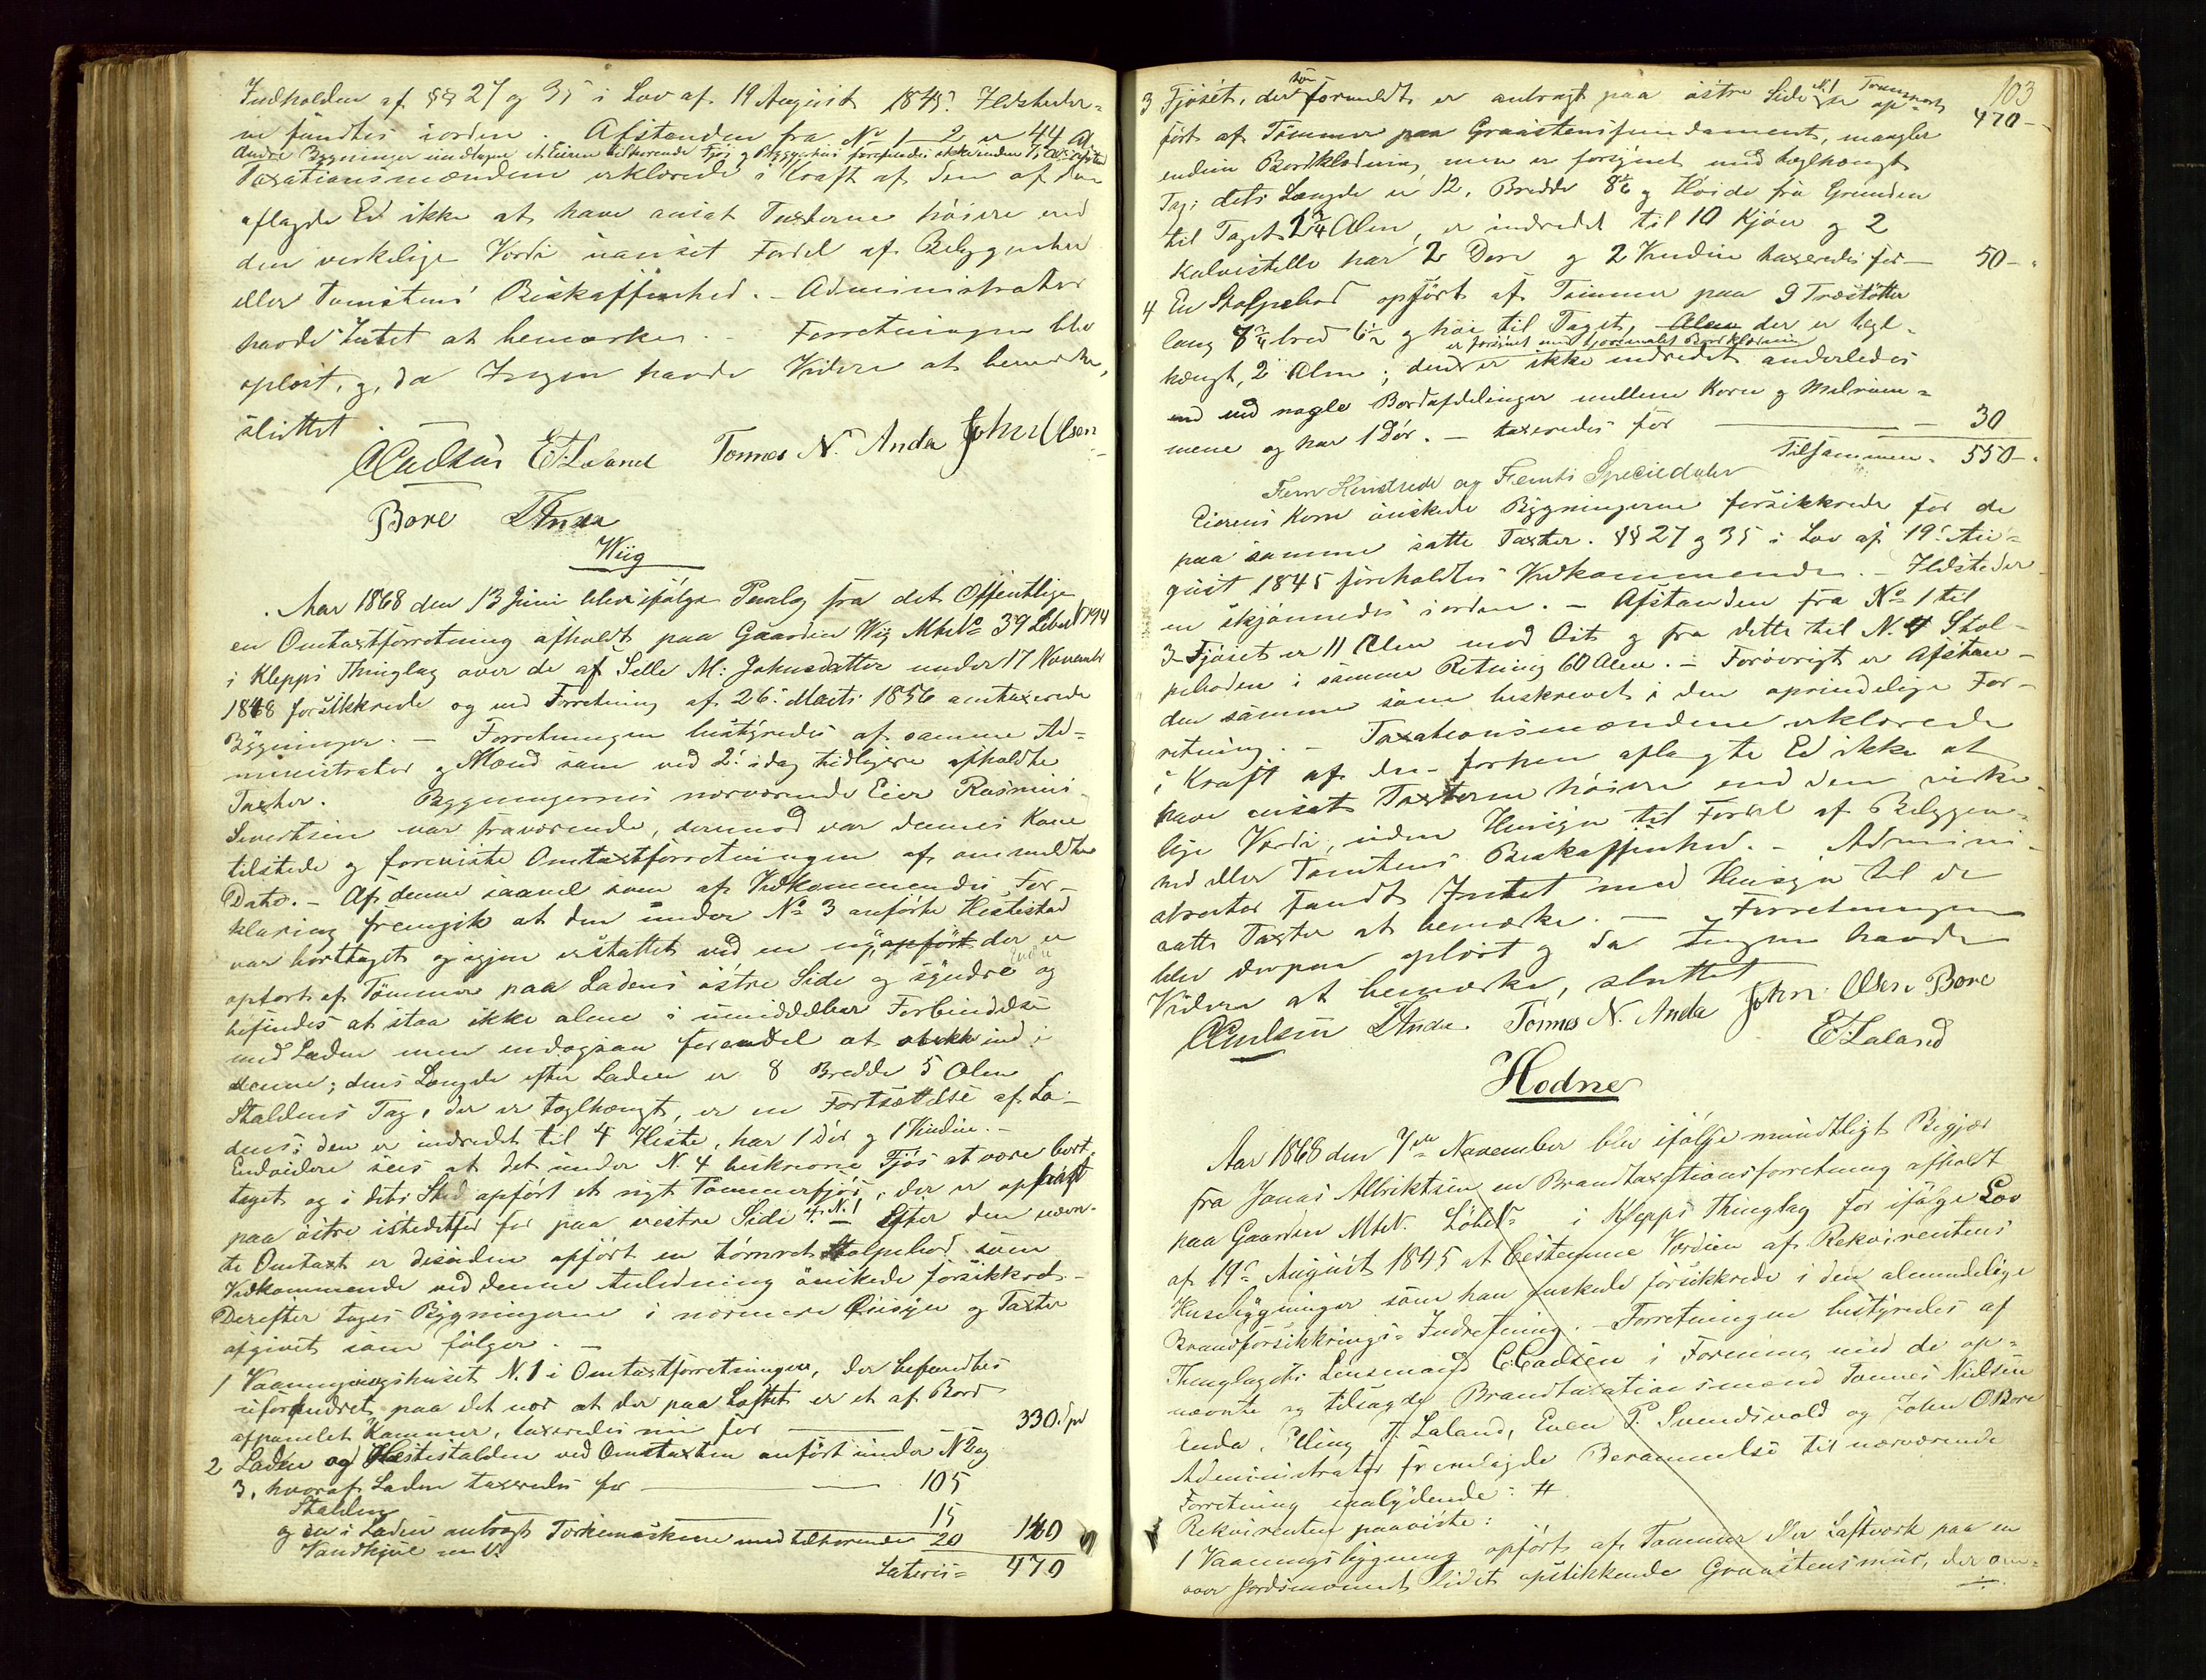 Indholden af §§ 27 og 35 i Lov af 19 August 1845. Ildsteder=
ne fandtes iorden. Afstanden fra No 1 - 2 er 44 Al
Andre Bygninger undtagne et Eieren tilhørende Fjøs og Bryggerhus forefindes ikke inden
Taxationsmændene erklærede i Kraft af den af dem
aflagde Ed ikke at have ansat Taxterne høiere end
den verkelige Værdi uanset Fordel af Beliggenhed
eller Tomtens Beskaffenhed. - Administrator
havde Intet at bemærke. - Forretningen blev
oplæst, og, da Ingen havde Videre at bemærke,
sluttet.
E. T. Laland Tønnes N. Anda John Olsen
Bore T Anda
Wiig
Aar 1868 den 13 Juni blev ifølge Paalæg fra det Offentlige
en Omtaxtforretning afholdt paa Gaarden Wiig Mtrl No 39 Løbe No 194
i Klepps Thinglag over de af Sille M: Johnsdatter under 17 November
1848 forsikkrede og ved Forretning af 26. Marts 1856 omtaxerede
Bygninger. - Forretningen bestyredes af samme Ad=
ministrator og Mænd som ved 2: idag tidligere afholdte
Taxter. Bygningernes nærværende Eier Rasmus
Sivertsen var fraværende, derimod var dennes Kone
tilstede og foreviste Omtaxtforretningen af anmeldte
Dato. - Af denne saavel som af Vedkommendes For-
klaring fremgik at den under No 3 anførte Hestestald
var borttaget og igjen erstattet ved en ny, opført der er
opført af Tømmer paa Ladens østre Side og søndre Ende og
befindes at staa ikke alene i umiddelbar Forbindelse
med Laden men endogsaa forendel at stikke ind i
denne; dens Længde efter Laden er 8 Bredde 5 Alen
Staldens Tag, der er teglhængt, er en Fortsættelse af La-
dens; den er indredet til 4 Heste, har 1 Dør og 1 Vindue. -
Endvidere sees at det under N. 4 beskrevne Fjøs at være bort-
taget og i dets Sted opført et nyt Tømmerfjøs, der er opført
paa østre istedetfor for paa vestre Side af N. 1 Efter den nævn-
te Omtaxt er desuden opført en tømret Stolpebod som
Vedkommende ved denne Anledning ønskede forsikkred. -
Derefter toges Bygningerne i nærmere Øiesyn og Taxter
afgivet som følger. -
1 Vaaningshuset N. 1 i Omtaxtforretningen, der befandtes
uforandret paa det nær at der paa Loftet er et af Bord
afpanelet Kammer, taxeredes nu for 330. Spd
2 Laden og Hestestalden ved Omtaxten anført under N 2 og
3, hvoraf Laden taxeredes for 105
Stalden 15
og en i Laden anbragt Tærskemaskine med tilhørende 20 140
Vandhjul
Lateris= 470
103
3 Fjøset, der som formeldt er anbragt paa østre Side af N. 1 er op- Transport 470 -
ført af Tømmer paa Graastensfundament, mangler
endnu Bordklædning men er forsynet med teglhængt
Tag; dets Længde er 12, Bredde 8½ og Høide fra Grunden
til Taget 2¾ Alen, er indredet til 10 Kjør og 2
Kalvestelle har 2 Døre og 2 Vinduer taxeredes for - 50 -
4 En Stolpebod opført af Tømmer paa 9 Træstøtter
lang 7¾ bred 6½ og høi til Taget, Alen der er tegl-
er forsynet med Bordklædning
hængt, 2 Alen; den er ikke indredet anderledes
end med nogle Bordafdelinger mellem Korn og Melrum=
mene og har 1 Dør. - taxeredes for 30
Tilsammen. 550 -
Fem Hundrede og Femti Speciedaler
Eierens Kone ønskede Bygningerne forsikkrede for de
paa samme satte Taxter. §§ 27 og 35 i Lov af 19. Au=
gust 1845 foreholdtes Vedkommende. - Ildsteder
ne skjønnedes iorden. - Afstanden fra No 1 til
3 Fjøset er 11 Alen mod Øst og fra dette til N. 4 Stol-
peboden i samme Retning 60 Alen. - Forøvrigt er Afstan-
den samme som beskrevet i den oprindelige For-
retning. - Taxationsmændene erklærede
i Kraft af den forhen aflagte Ed ikke at
have ansat Taxterne høiere end den virke
lige Værdi, uden Hensyn til Fordel af Beliggen-
hed eller Tomtens Beskaffenhed. - Admini-
strator fandt Intet med Hensyn til de
satte Taxter at bemærke. - Forretningen
blev derpaa oplæst og da Ingen havde
Videre at bemærke, sluttet
T Anda. Tønnes N. Anda John Olsen Bore
E. T. Laland
Hodne
Aar 1868 den 7de November blev ifølge mundtligt Begjær
fra Jonas Albriktsen en Brandtaxtionsforretning afholdt
paa Gaarden Mtrl. Løbe No i Klepps Thinglag for ifølge Lov
af 19. August 1845 at bestemme Værdien af Rekvirentens
Husebygninger som han ønskede forsikkrede i den almindelige
Brandforsikkrings=Indretning. - Forretningen bestyredes af
Thinglagets Lensmand i Forening med de op=
nævnte og tilsagde Brandtaxationsmænd Tønnes Nielsen
Anda, Elling T. Laland, Even P. Svendsvold og John O Bore
Administrator fremlagde Berammelse til nærværende
Forretning saalydende: #
Rekvirenten paaviste:
1 Vaaningsbygning opført af Tømmer eller Laftværk paa en
over Jordsmonnet lidet opstikkende Graastensmur, der om=